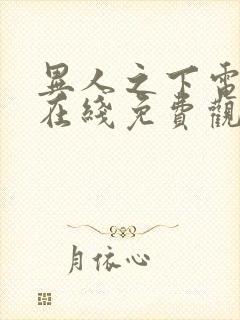 異人之下電
在綫免費觀
月依心